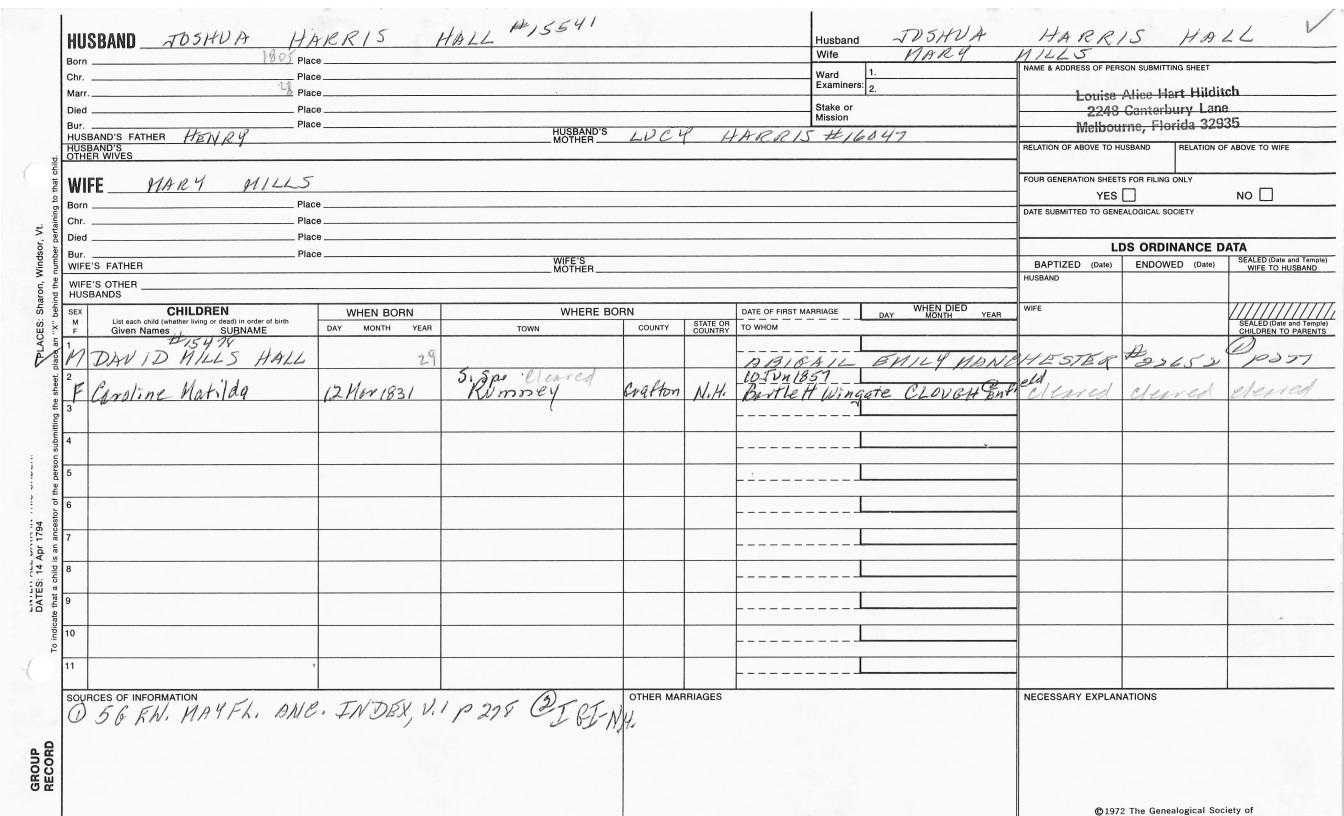 HUSBAND JOSHUA HARRIS HALL #15541
Born 1805 Place
Chr. Place
Marr. 28 Place
Died Place
Bur. Place
HUSBAND'S FATHER HENRY HUSBAND'S MOTHER LUCY HARRIS #16047
HUSBAND'S OTHER WIVES
Husband JOSHUA HARRIS HALL ✓
Wife MARY MILLS
Ward Examiners: 1.
2.
Stake or Mission
NAME & ADDRESS OF PERSON SUBMITTING SHEET
Louise Alice Hart Hilditch
2248 Canterbury Lane
Melbourne, Florida 32935
RELATION OF ABOVE TO HUSBAND RELATION OF ABOVE TO WIFE
FOUR GENERATION SHEETS FOR FILING ONLY
YES NO
DATE SUBMITTED TO GENEALOGICAL SOCIETY
WIFE MARY MILLS
Born Place
Chr. Place
Died Place
Bur. Place
WIFE'S FATHER WIFE'S MOTHER
WIFE'S OTHER HUSBANDS
LDS ORDINANCE DATA
BAPTIZED (Date) ENDOWED (Date) SEALED (Date and Temple) WIFE TO HUSBAND
HUSBAND
WIFE
SEALED (Date and Temple) CHILDREN TO PARENTS
SEX M F
CHILDREN
List each child (whether living or dead) in order of birth
Given Names SURNAME
WHEN BORN
DAY MONTH YEAR
WHERE BORN
TOWN COUNTY STATE OR COUNTRY
DATE OF FIRST MARRIAGE
TO WHOM
WHEN DIED
DAY MONTH YEAR
#15474
1 M DAVID MILLS HALL 29 ABIGAIL EMILY MANCHESTER #22652 ① p277
S. Spo Cleared 10 Jun 1857
2 F Caroline Matilda 12 Mar 1831 Rumney Grafton N.H. Bartlett Wingate CLOUGH @ Enfield cleared cleared cleared
3
4
5
6
7
8
9
10
11
SOURCES OF INFORMATION
① 56 MAYFL. ANC. INDEX, V.1 p 278 ② IGI-N.H.
OTHER MARRIAGES
NECESSARY EXPLANATIONS
©1972 The Genealogical Society of
PLACES: Sharon, Windsor, Vt.
DATES: 14 Apr 1794
To indicate that a child is an ancestor of the person submitting the sheet, place an "X" behind the number pertaining to that child.
GROUP RECORD